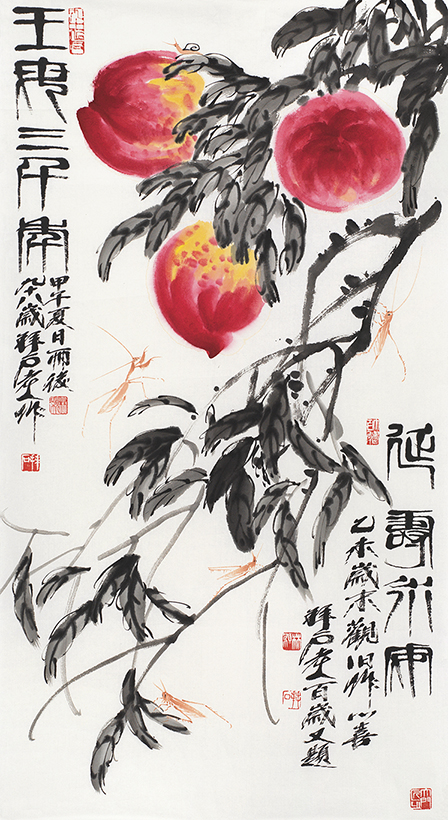 王母三千年
甲午夏日雨後
九八歲拜石老人作
延壽
乙未歲末觀旧作心喜
拜石老人百歲又題